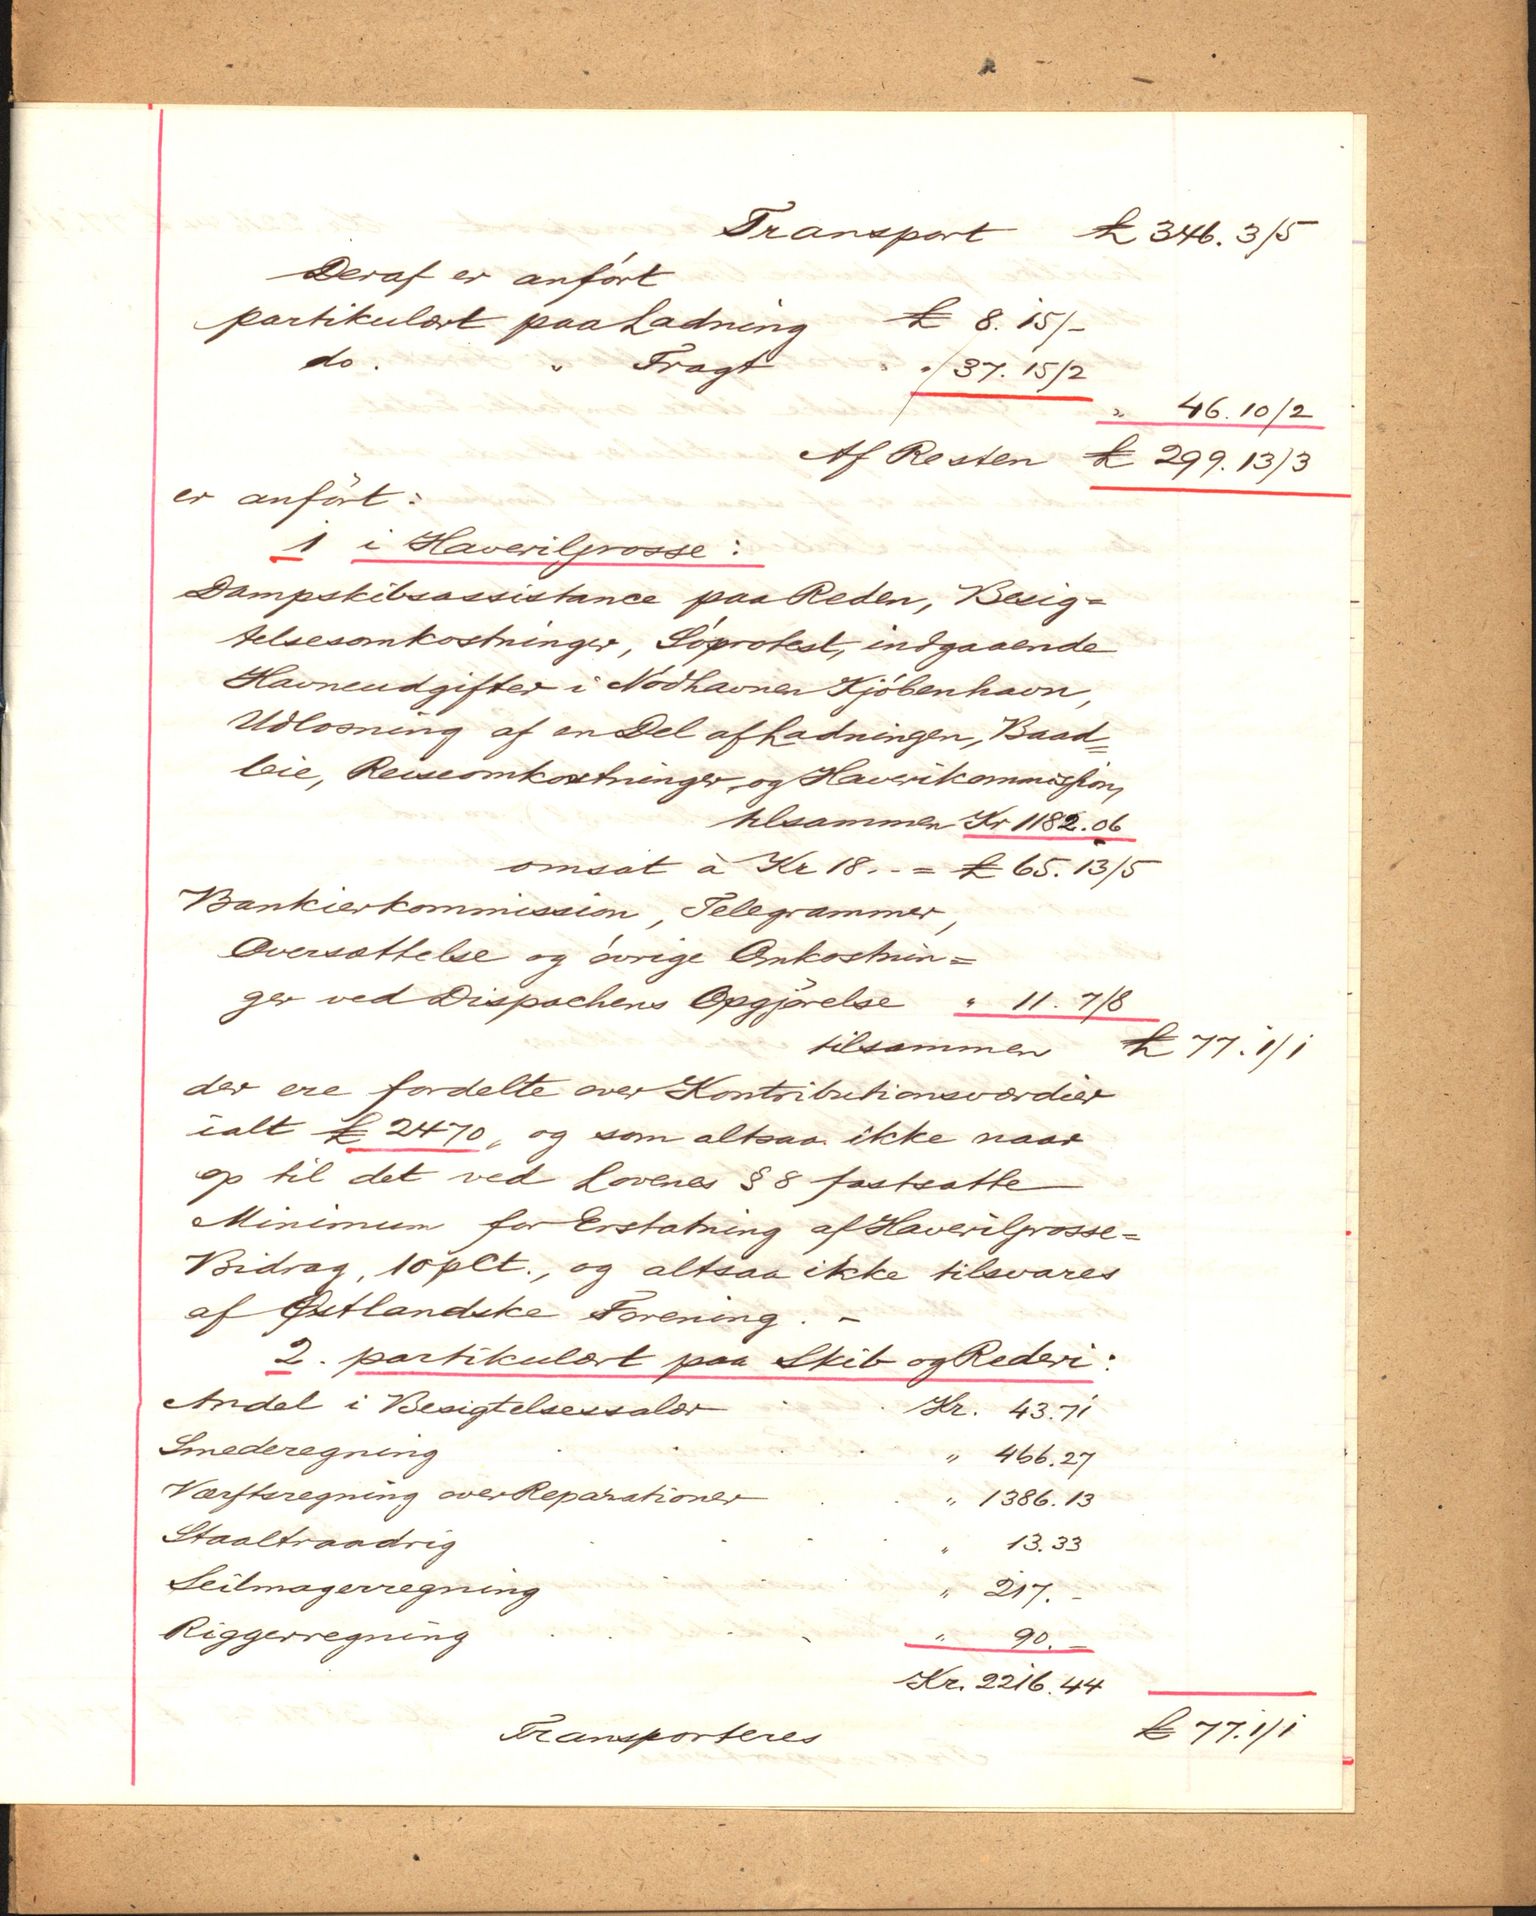 Transport £ 346. 3/5
Deraf er anført
partikulært paa Ladning £ 8. 15/-
do. " Fragt " 37. 15/2
" 46. 10/2
Af Resten £ 299. 13/3
er anført:
1 i Haverilgrosse:
Dampskibsassistance paa Reden, Besig=
telsesomkostninger, Søprotest, indgaaende
Havneudgifter i Nödhavnen Kjøbenhavn,
Udlosning af en Del af Ladningen, Baad=
leie, Reiseomkostninger, og Haverikommission,
tilsammen Kr 1182.06
omsat à Kr 18.- = £ 65. 13/5
Bankierkommission, Telegrammer,
Oversættelse og øvrige Omkostnin=
ger ved Dispachens Opgjørelse " 11. 7/8
tilsammen £ 77. 1/1
der ere fordelte over Kontributionsværdier
ialt £ 2470, og som altsaa ikke naar
op til det ved Lovenes § 8 fastsatte
Minimum for Erstatning af Haverilgrosse=
Bidrag, 10 pCt., og altsaa ikke tilsvares
af Østlandske Forening. -
2. partikulært paa Skib og Rederi:
Andel i Besigtelsessalær Kr. 43.71
Smederegning " 466.27
Værftsregning over Reparationer " 1386.13
Staaltraadrig " 13.33
Seilmagerregning " 217. -
Riggerregning " 90. -
Kr. 2216.44
Transporteres £ 77. 1/1